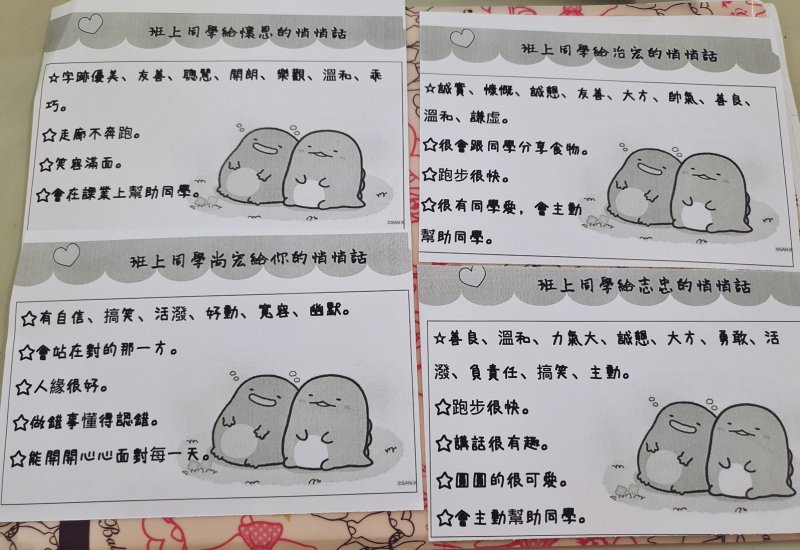 班上同學給懷恩的悄悄話
☆字跡優美、友善、聰慧、開朗、樂觀、溫和、乖
巧。
☆走廊不奔跑。
☆笑容滿面。
☆會在課業上幫助同學。
©SAN-X
班上同學給治宏的悄悄話
☆誠實、慷慨、誠懇、友善、大方、帥氣、善良、
溫和、謙虛。
☆很會跟同學分享食物。
☆跑步很快。
☆很有同學愛，會主動
幫助同學。
©SAN-X
班上同學尚宏給你的悄悄話
☆有自信、搞笑、活潑、好動、寬容、幽默。
☆會站在對的那一方。
☆人緣很好。
☆做錯事懂得認錯。
☆能開開心心面對每一天。
©SAN-X
班上同學給志忠的悄悄話
☆善良、溫和、力氣大、誠懇、大方、勇敢、活
潑、負責任、搞笑、主動。
☆跑步很快。
☆講話很有趣。
☆圓圓的很可愛。
☆會主動幫助同學。
©SAN-X